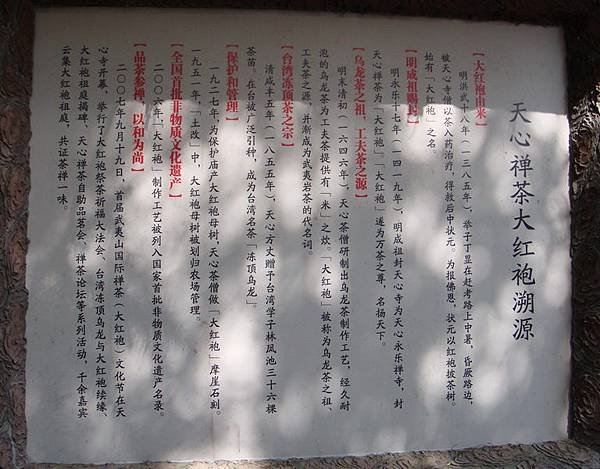 天心禅茶大红袍溯源
【大红袍由来】
明洪武十八年（一三八五年），举子丁显在赶考路上中暑，昏厥路边，
被天心寺僧以茶入药治疗，得救后中状元。为报佛恩，状元以红袍披茶树。
始有「大红袍」之名。
【明成祖赐封】
明永乐十七年（一四一九年），明成祖封天心寺为天心永乐禅寺，封
天心禅茶为「大红袍」。「大红袍」遂为万茶之尊，名扬天下。
【乌龙茶之祖，工夫茶之源】
明末清初（一六四六年），天心茶僧研制出乌龙茶制作工艺，经久耐
泡的乌龙茶为工夫茶提供有「米」之炊。「大红袍」被称为乌龙茶之祖、
工夫茶之源，并渐成为武夷岩茶的代名词。
【台湾冻顶茶之宗】
清咸丰五年（一八五五年），天心方丈赠予台湾学子林凤池三十六棵
茶苗。在台被广泛引种，成为台湾名茶「冻顶乌龙」。
【保护和管理】
一九二七年，为保护庙产大红袍母树，天心茶僧做「大红袍」摩崖石刻。
一九五一年，「土改」中，大红袍母树被划归农场管理。
【全国首批非物质文化遗产】
二〇〇六年，「大红袍」制作工艺被列入国家首批非物质文化遗产名录。
【品茶参禅，以和为尚】
二〇〇七年九月十九日，首届武夷山国际禅茶（大红袍）文化节在天
心寺开幕，举行了大红袍祭茶祈福大法会、台湾冻顶乌龙与大红袍续缘、
大红袍祖庭揭碑、天心禅茶自助品茗会、禅茶论坛等系列活动，千余嘉宾
云集大红袍祖庭，共证茶禅一味。